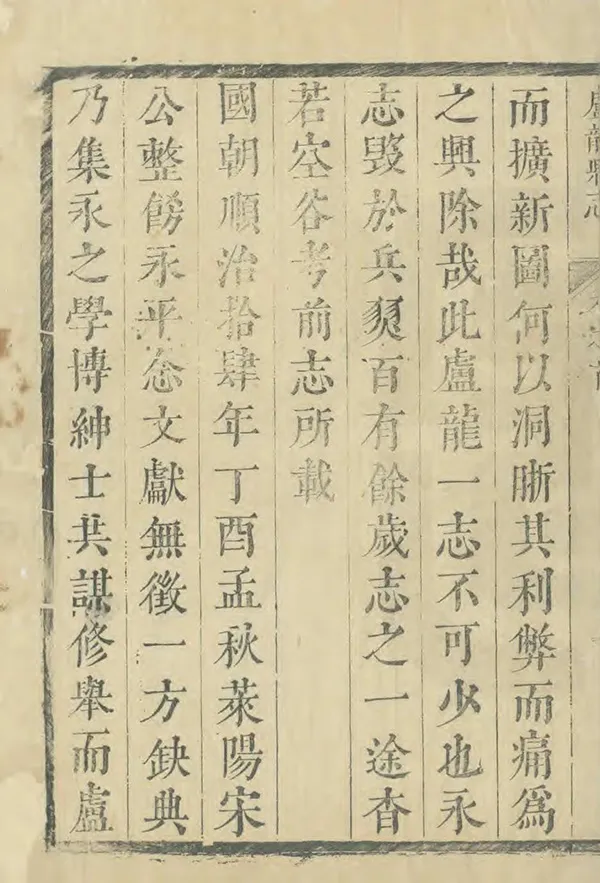 盧龍縣志
而擴新圖何以洞晰其利弊而痛爲
之興除哉此盧龍一志不可少也永
志毀於兵燹百有餘歲志之一途杳
若空谷考前志所載
國朝順治拾肆年丁酉孟秋萊陽宋
公整飭永平念文獻無徵一方缺典
乃集永之學博紳士共謀修舉而盧